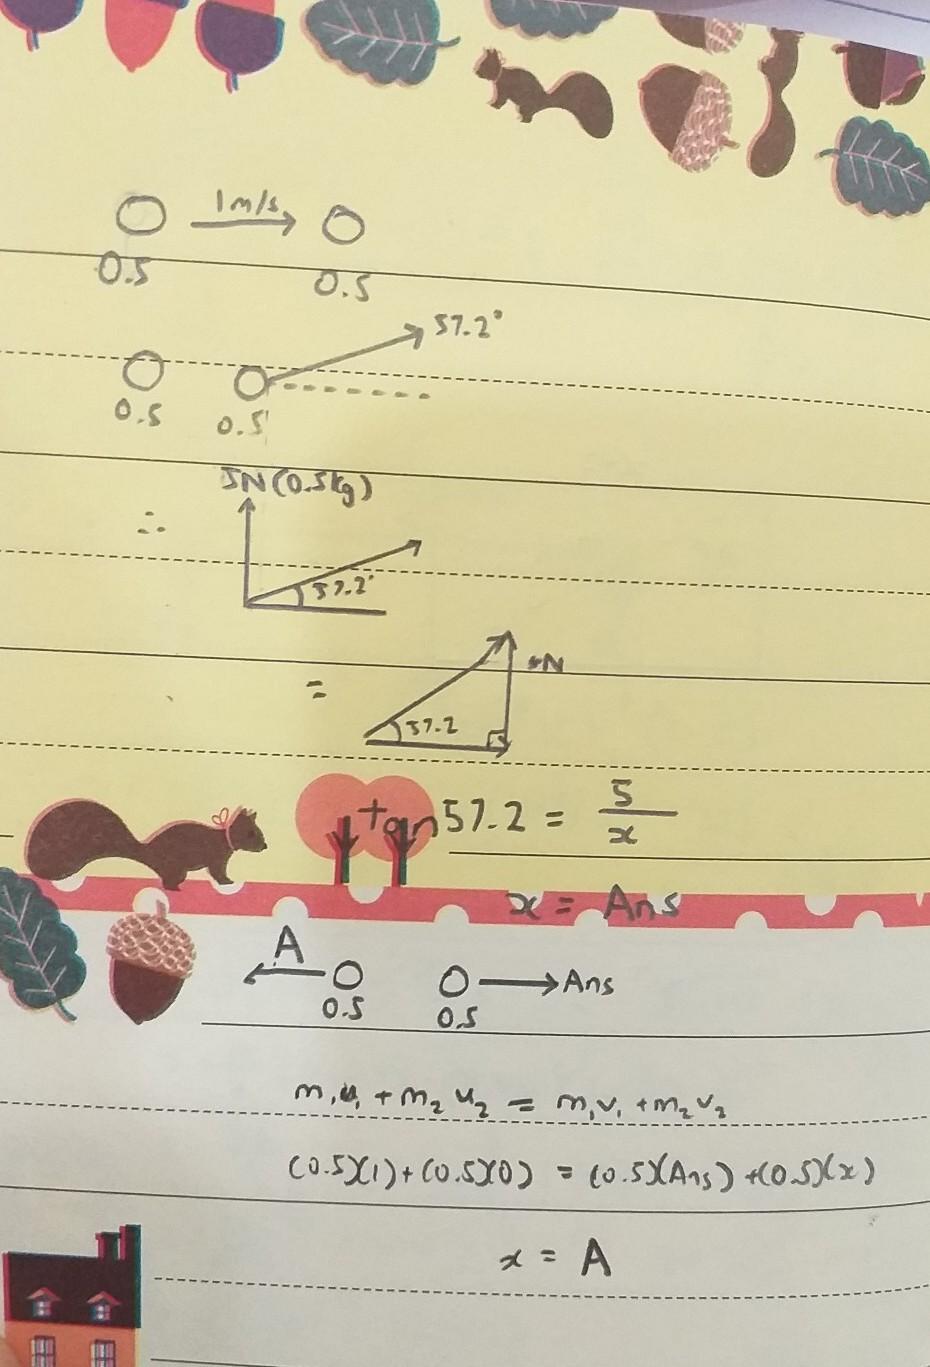 1m/s
0.5 0.5
57.2°
0.5 0.5
5N (0.5kg)
∴
57.2°
=
5N
57.2
tan 57.2 = 5/x
x = Ans
A
Ans
0.5 0.5
m₁u₁ + m₂u₂ = m₁v₁ + m₂v₂
(0.5)(1) + (0.5)(0) = (0.5)(Ans) + (0.5)(x)
x = A